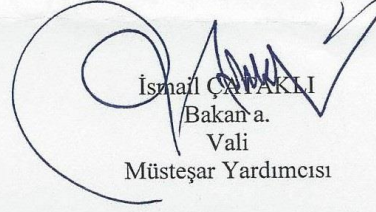 İsmail ÇATAKLI
Bakan a.
Vali
Müsteşar Yardımcısı